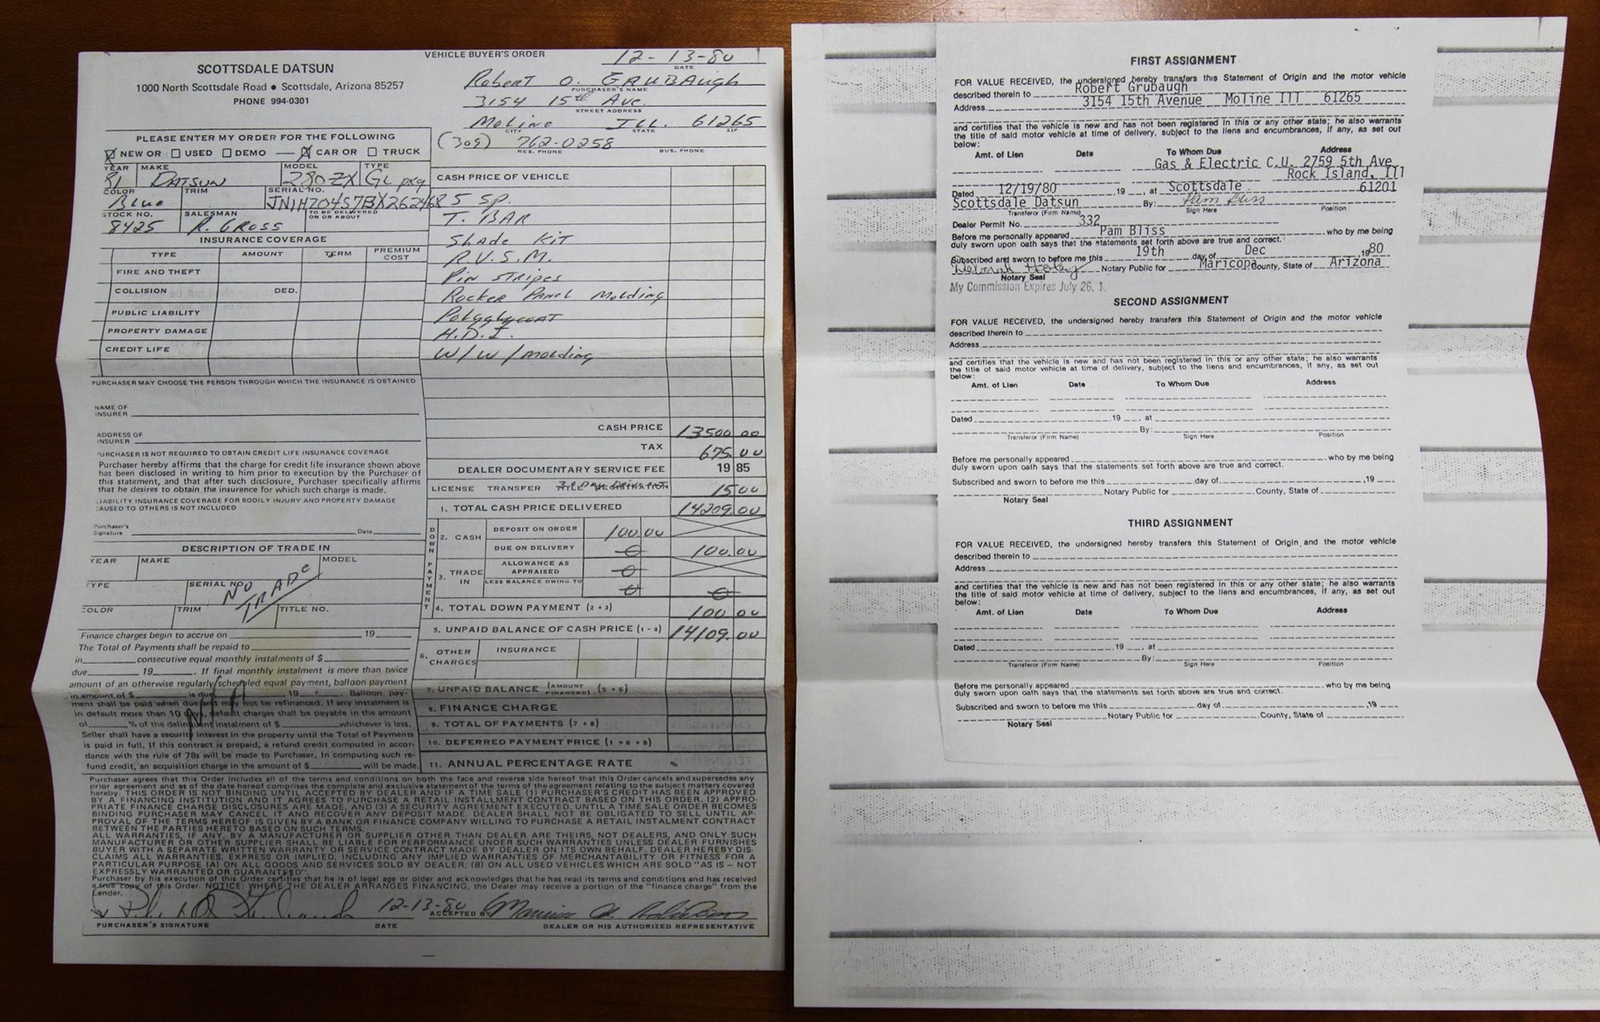 VEHICLE BUYER'S ORDER
SCOTTSDALE DATSUN
1000 North Scottsdale Road • Scottsdale, Arizona 85257
PHONE 994-0301
12-13-80
DATE
Robert O. GRUBAugh
PURCHASER'S NAME
3154 15th Ave.
STREET ADDRESS
Moline ILL. 61265
CITY STATE ZIP
(309) 762-0258
RES. PHONE BUS. PHONE
PLEASE ENTER MY ORDER FOR THE FOLLOWING
X NEW OR USED DEMO — X CAR OR TRUCK
YEAR MAKE MODEL TYPE
81 DATSUN 280-ZX GL pkg
COLOR TRIM SERIAL NO.
Blue JN1HZ04S7BX262468
STOCK NO. SALESMAN TO BE DELIVERED ON OR ABOUT
8425 R. GROSS
INSURANCE COVERAGE
TYPE AMOUNT TERM PREMIUM COST
FIRE AND THEFT
COLLISION DED.
PUBLIC LIABILITY
PROPERTY DAMAGE
CREDIT LIFE
PURCHASER MAY CHOOSE THE PERSON THROUGH WHICH THE INSURANCE IS OBTAINED
NAME OF INSURER
ADDRESS OF INSURER
PURCHASER IS NOT REQUIRED TO OBTAIN CREDIT LIFE INSURANCE COVERAGE
Purchaser hereby affirms that the charge for credit life insurance shown above
has been disclosed in writing to him prior to execution by the Purchaser of
this statement, and that after such disclosure, Purchaser specifically affirms
that he desires to obtain the insurance for which such charge is made.
LIABILITY INSURANCE COVERAGE FOR BODILY INJURY AND PROPERTY DAMAGE
CAUSED TO OTHERS IS NOT INCLUDED
Purchaser's Signature Date
DESCRIPTION OF TRADE IN
YEAR MAKE MODEL
TYPE SERIAL NO.
NO TRADE
COLOR TRIM TITLE NO.
Finance charges begin to accrue on 19
The Total of Payments shall be repaid to
in consecutive equal monthly instalments of $
due 19 . If final monthly instalment is more than twice
amount of an otherwise regularly scheduled equal payment, balloon payment
in amount of $ is due 19 . Balloon pay-
ment shall be paid when due, may not be refinanced. If any instalment is
in default more than 10 days default charges shall be payable in the amount
of % of the delinquent instalment of $ whichever is less.
N/A
Seller shall have a security interest in the property until the Total of Payments
is paid in full. If this contract is prepaid, a refund credit computed in accor-
dance with the rule of 78s will be made to Purchaser. In computing such re-
fund credit, an acquisition charge in the amount of $ will be made.
CASH PRICE OF VEHICLE
5 SP.
T. BAR
Shade Kit
R.V.S.M.
Pin stripes
Rocker Panel Molding
Polyglycoat
H.D.I.
W/W/Molding
CASH PRICE 13500.00
TAX 675.00
DEALER DOCUMENTARY SERVICE FEE 19 85
LICENSE TRANSFER 15.00
1. TOTAL CASH PRICE DELIVERED 14209.00
DOWN PAYMENT
2. CASH DEPOSIT ON ORDER 100.00
DUE ON DELIVERY 0 100.00
3. TRADE IN ALLOWANCE AS APPRAISED 0
LESS BALANCE OWING TO 0 0
4. TOTAL DOWN PAYMENT (2 + 3) 100.00
5. UNPAID BALANCE OF CASH PRICE (1 - 4) 14109.00
6. OTHER CHARGES INSURANCE
7. UNPAID BALANCE (AMOUNT FINANCED) (5 + 6)
8. FINANCE CHARGE
9. TOTAL OF PAYMENTS (7 + 8)
10. DEFERRED PAYMENT PRICE (1 + 6 + 8)
11. ANNUAL PERCENTAGE RATE %
Purchaser agrees that this Order includes all of the terms and conditions on both the face and reverse side hereof that this Order cancels and supersedes any
prior agreement and as of the date hereof comprises the complete and exclusive statement of the terms of the agreement relating to the subject matters covered
hereby. THIS ORDER IS NOT BINDING UNTIL ACCEPTED BY DEALER AND IF A TIME SALE (1) PURCHASER'S CREDIT HAS BEEN APPROVED
BY A FINANCING INSTITUTION AND IT AGREES TO PURCHASE A RETAIL INSTALLMENT CONTRACT BASED ON THIS ORDER, (2) APPRO-
PRIATE FINANCE CHARGE DISCLOSURES ARE MADE, AND (3) A SECURITY AGREEMENT EXECUTED. UNTIL A TIME SALE ORDER BECOMES
BINDING PURCHASER MAY CANCEL IT AND RECOVER ANY DEPOSIT MADE. DEALER SHALL NOT BE OBLIGATED TO SELL UNTIL AP-
PROVAL OF THE TERMS HEREOF IS GIVEN BY A BANK OR FINANCE COMPANY WILLING TO PURCHASE A RETAIL INSTALMENT CONTRACT
BETWEEN THE PARTIES HERETO BASED ON SUCH TERMS.
ALL WARRANTIES, IF ANY, BY A MANUFACTURER OR SUPPLIER OTHER THAN DEALER ARE THEIRS, NOT DEALERS, AND ONLY SUCH
MANUFACTURER OR OTHER SUPPLIER SHALL BE LIABLE FOR PERFORMANCE UNDER SUCH WARRANTIES UNLESS DEALER FURNISHES
BUYER WITH A SEPARATE WRITTEN WARRANTY OR SERVICE CONTRACT MADE BY DEALER ON ITS OWN BEHALF. DEALER HEREBY DIS-
CLAIMS ALL WARRANTIES, EXPRESS OR IMPLIED, INCLUDING ANY IMPLIED WARRANTIES OF MERCHANTABILITY OR FITNESS FOR A
PARTICULAR PURPOSE (A) ON ALL GOODS AND SERVICES SOLD BY DEALER; (B) ON ALL USED VEHICLES WHICH ARE SOLD "AS IS — NOT
EXPRESSLY WARRANTED OR GUARANTEED".
Purchaser by his execution of this Order certifies that he is of legal age or older and acknowledges that he has read its terms and conditions and has received
a true copy of this Order. NOTICE: WHERE THE DEALER ARRANGES FINANCING, the Dealer may receive a portion of the "finance charge" from the
Lender.
12-13-80 ACCEPTED BY
PURCHASER'S SIGNATURE DATE DEALER OR HIS AUTHORIZED REPRESENTATIVE
FIRST ASSIGNMENT
FOR VALUE RECEIVED, the undersigned hereby transfers this Statement of Origin and the motor vehicle
described therein to Robert Grubaugh
Address 3154 15th Avenue Moline Ill 61265
and certifies that the vehicle is new and has not been registered in this or any other state; he also warrants
the title of said motor vehicle at time of delivery, subject to the liens and encumbrances, if any, as set out
below:
Amt. of Lien Date To Whom Due Address
Gas & Electric C.U. 2759 5th Ave
Rock Island, Ill
61201
Dated 12/19/80 19 , at Scottsdale
Scottsdale Datsun By: Pam Bliss
Transferor (Firm Name) Sign Here Position
Dealer Permit No. 332
Before me personally appeared Pam Bliss who by me being
duly sworn upon oath says that the statements set forth above are true and correct.
Subscribed and sworn to before me this 19th day of Dec 1980
Notary Public for Maricopa County, State of Arizona
Notary Seal
My Commission Expires July 26, 1
SECOND ASSIGNMENT
FOR VALUE RECEIVED, the undersigned hereby transfers this Statement of Origin and the motor vehicle
described therein to
Address
and certifies that the vehicle is new and has not been registered in this or any other state; he also warrants
the title of said motor vehicle at time of delivery, subject to the liens and encumbrances, if any, as set out
below:
Amt. of Lien Date To Whom Due Address
Dated 19 , at
By:
Transferor (Firm Name) Sign Here Position
Before me personally appeared who by me being
duly sworn upon oath says that the statements set forth above are true and correct.
Subscribed and sworn to before me this day of ,19
Notary Public for County, State of
Notary Seal
THIRD ASSIGNMENT
FOR VALUE RECEIVED, the undersigned hereby transfers this Statement of Origin and the motor vehicle
described therein to
Address
and certifies that the vehicle is new and has not been registered in this or any other state; he also warrants
the title of said motor vehicle at time of delivery, subject to the liens and encumbrances, if any, as set out
below:
Amt. of Lien Date To Whom Due Address
Dated 19 , at
By:
Transferor (Firm Name) Sign Here Position
Before me personally appeared who by me being
duly sworn upon oath says that the statements set forth above are true and correct.
Subscribed and sworn to before me this day of ,19
Notary Public for County, State of
Notary Seal